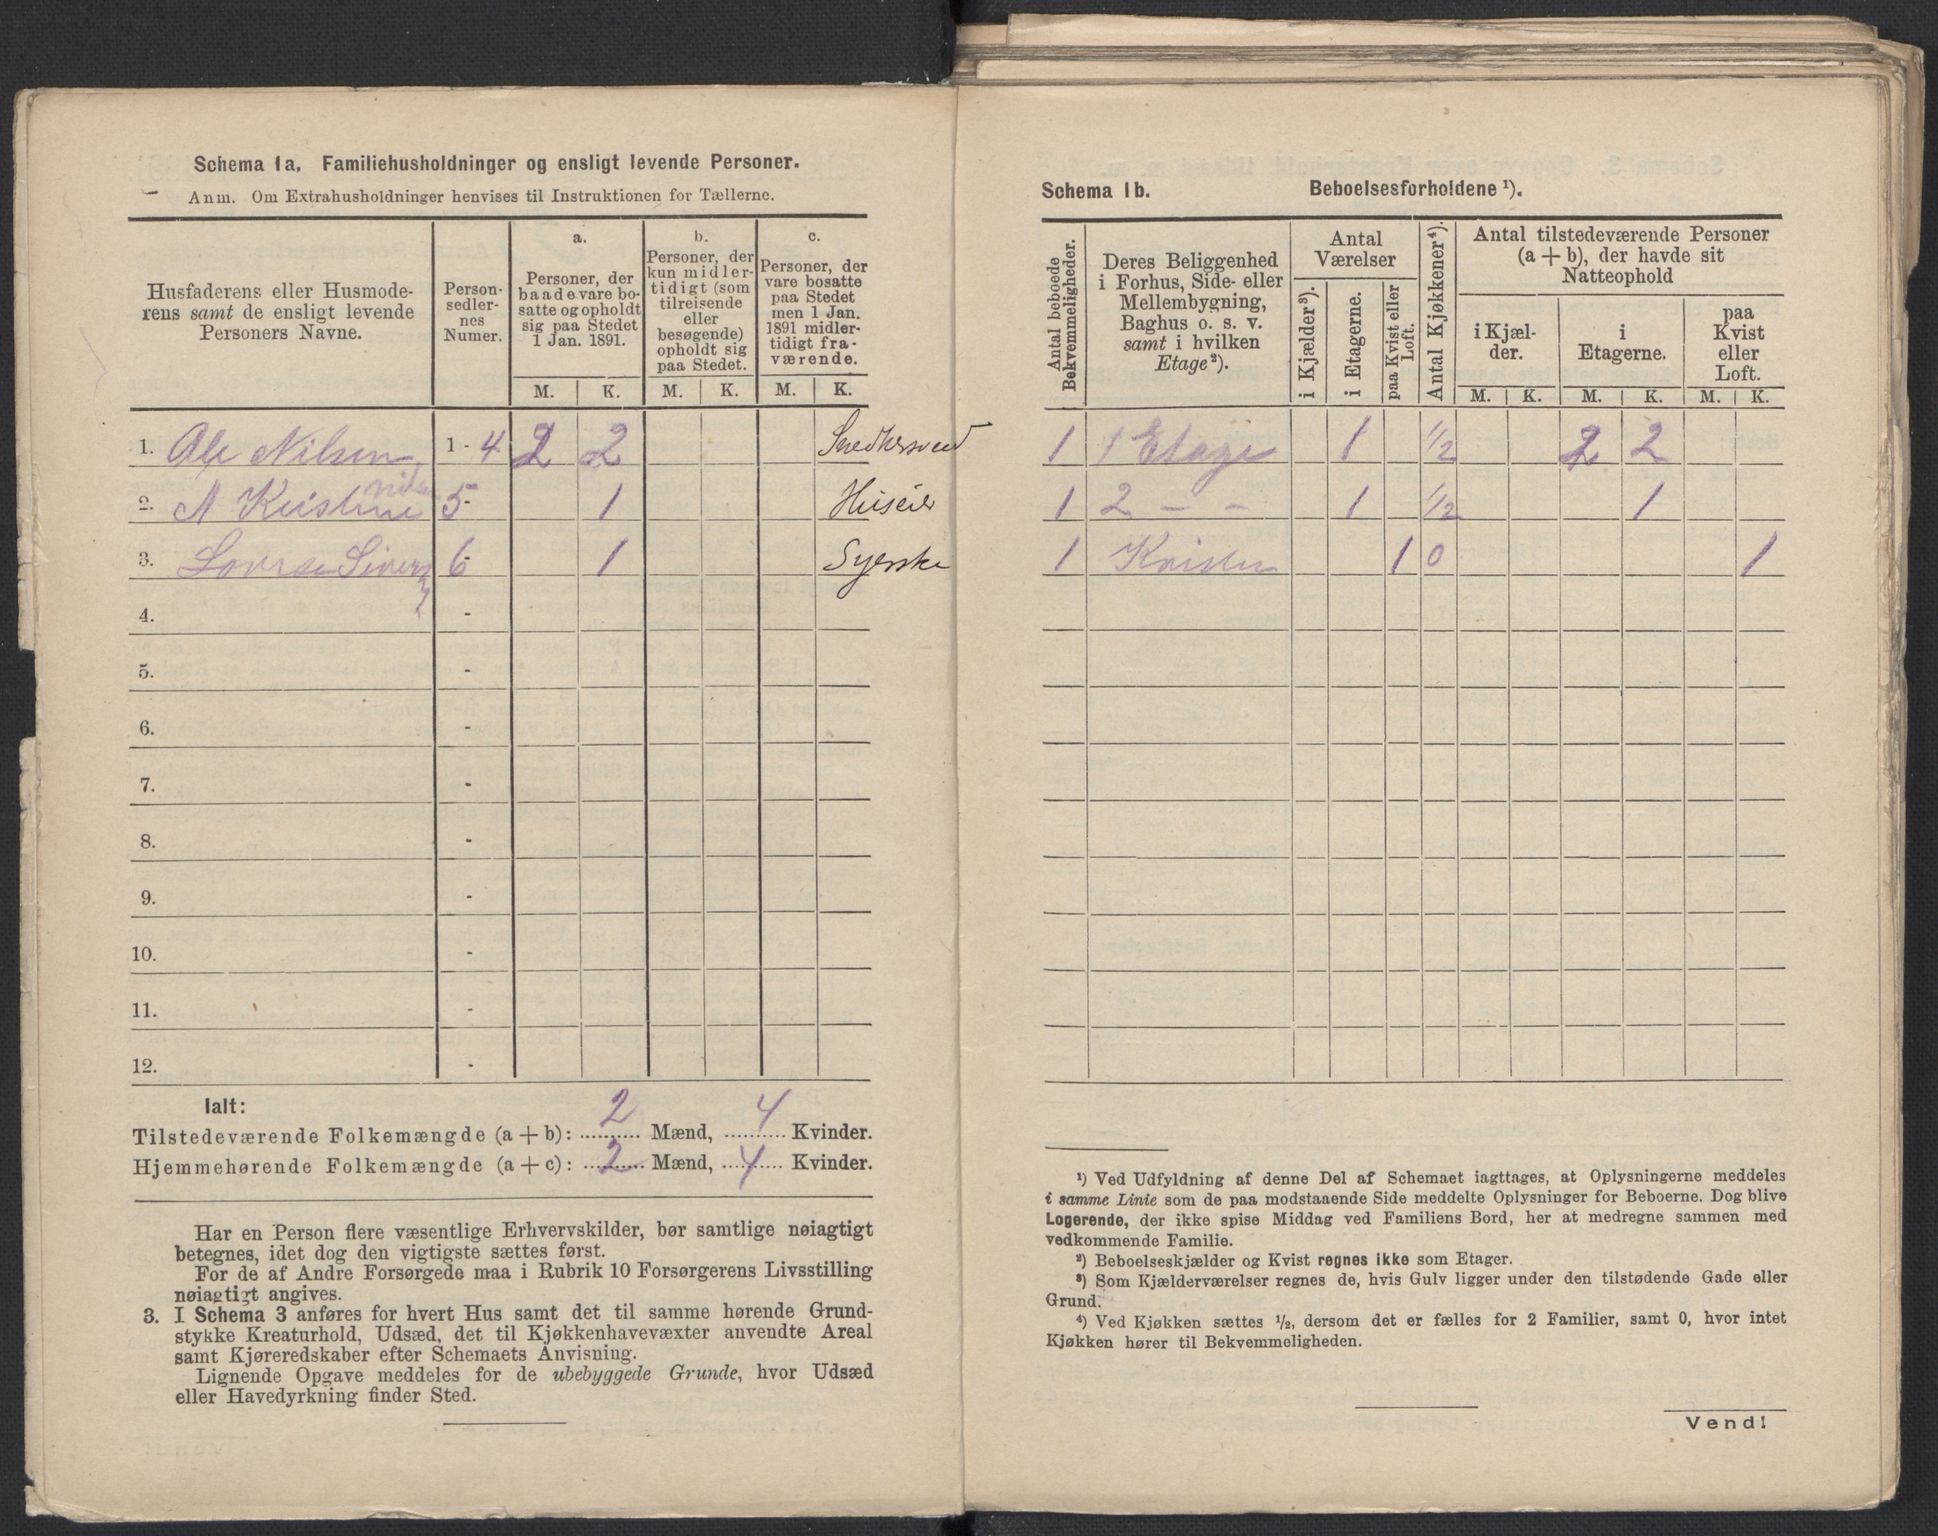 Schema 1a. Familiehusholdninger og ensligt levende Personer.
Anm. Om Extrahusholdninger henvises til Instruktionen for Tællerne.
Husfaderens eller Husmode-
rens samt de ensligt levende
Personers Navne.
Person-
sedler-
nes
Numer.
a.
Personer, der
baade vare bo-
satte og opholdt
sig paa Stedet
1 Jan. 1891.
b.
Personer, der
kun midler-
tidigt (som
tilreisende
eller
besøgende)
opholdt sig
paa Stedet.
c.
Personer, der
vare bosatte
paa Stedet
men 1 Jan.
1891 midler-
tidigt fra-
værende.
M. K. M. K. M. K.
1. Ole Nilsen 1 - 4 2 2 Snedkersvend
2. A Kristine Nilsen 5 - 1 Huseier
3. Lovise Sivers 6 - 1 Syerske
4. -
5. -
6. -
7. -
8. -
9. -
10. -
11. -
12. -
Ialt:
Tilstedeværende Folkemængde (a + b): 2 Mænd, 4 Kvinder.
Hjemmehørende Folkemængde (a + c): 2 Mænd, 4 Kvinder.
Har en Person flere væsentlige Erhvervskilder, bør samtlige nøiagtigt
betegnes, idet dog den vigtigste sættes først.
For de af Andre Forsørgede maa i Rubrik 10 Forsørgerens Livsstilling
nøiagtigt angives.
3. I Schema 3 anføres for hvert Hus samt det til samme hørende Grund-
stykke Kreaturhold, Udsæd, det til Kjøkkenhavevæxter anvendte Areal
samt Kjøreredskaber efter Schemaets Anvisning.
Lignende Opgave meddeles for de ubebyggede Grunde, hvor Udsæd
eller Havedyrkning finder Sted.
Schema 1b. Beboelsesforholdene ¹).
Antal beboede
Bekvemmeligheder.
Deres Beliggenhed
i Forhus, Side- eller
Mellembygning,
Baghus o. s. v.
samt i hvilken
Etage ²).
Antal
Værelser
i Kjælder ³).
i Etagerne.
paa Kvist eller
Loft.
Antal Kjøkkener ⁴).
Antal tilstedeværende Personer
(a + b), der havde sit
Natteophold
i Kjæl-
der.
i
Etagerne.
paa
Kvist
eller
Loft.
M. K. M. K. M. K.
1 1 Etage 1 1/2 2 2
1 2 - - 1 1/2 1
1 Kvisten 1 0 1
¹) Ved Udfyldning af denne Del af Schemaet iagttages, at Oplysningerne meddeles
i samme Linie som de paa modstaaende Side meddelte Oplysninger for Beboerne. Dog blive
Logerende, der ikke spise Middag ved Familiens Bord, her at medregne sammen med
vedkommende Familie.
²) Beboelseskjælder og Kvist regnes ikke som Etager.
³) Som Kjælderværelser regnes de, hvis Gulv ligger under den tilstødende Gade eller
Grund.
⁴) Ved Kjøkken sættes 1/2, dersom det er fælles for 2 Familier, samt 0, hvor intet
Kjøkken hører til Bekvemmeligheden.
Vend!